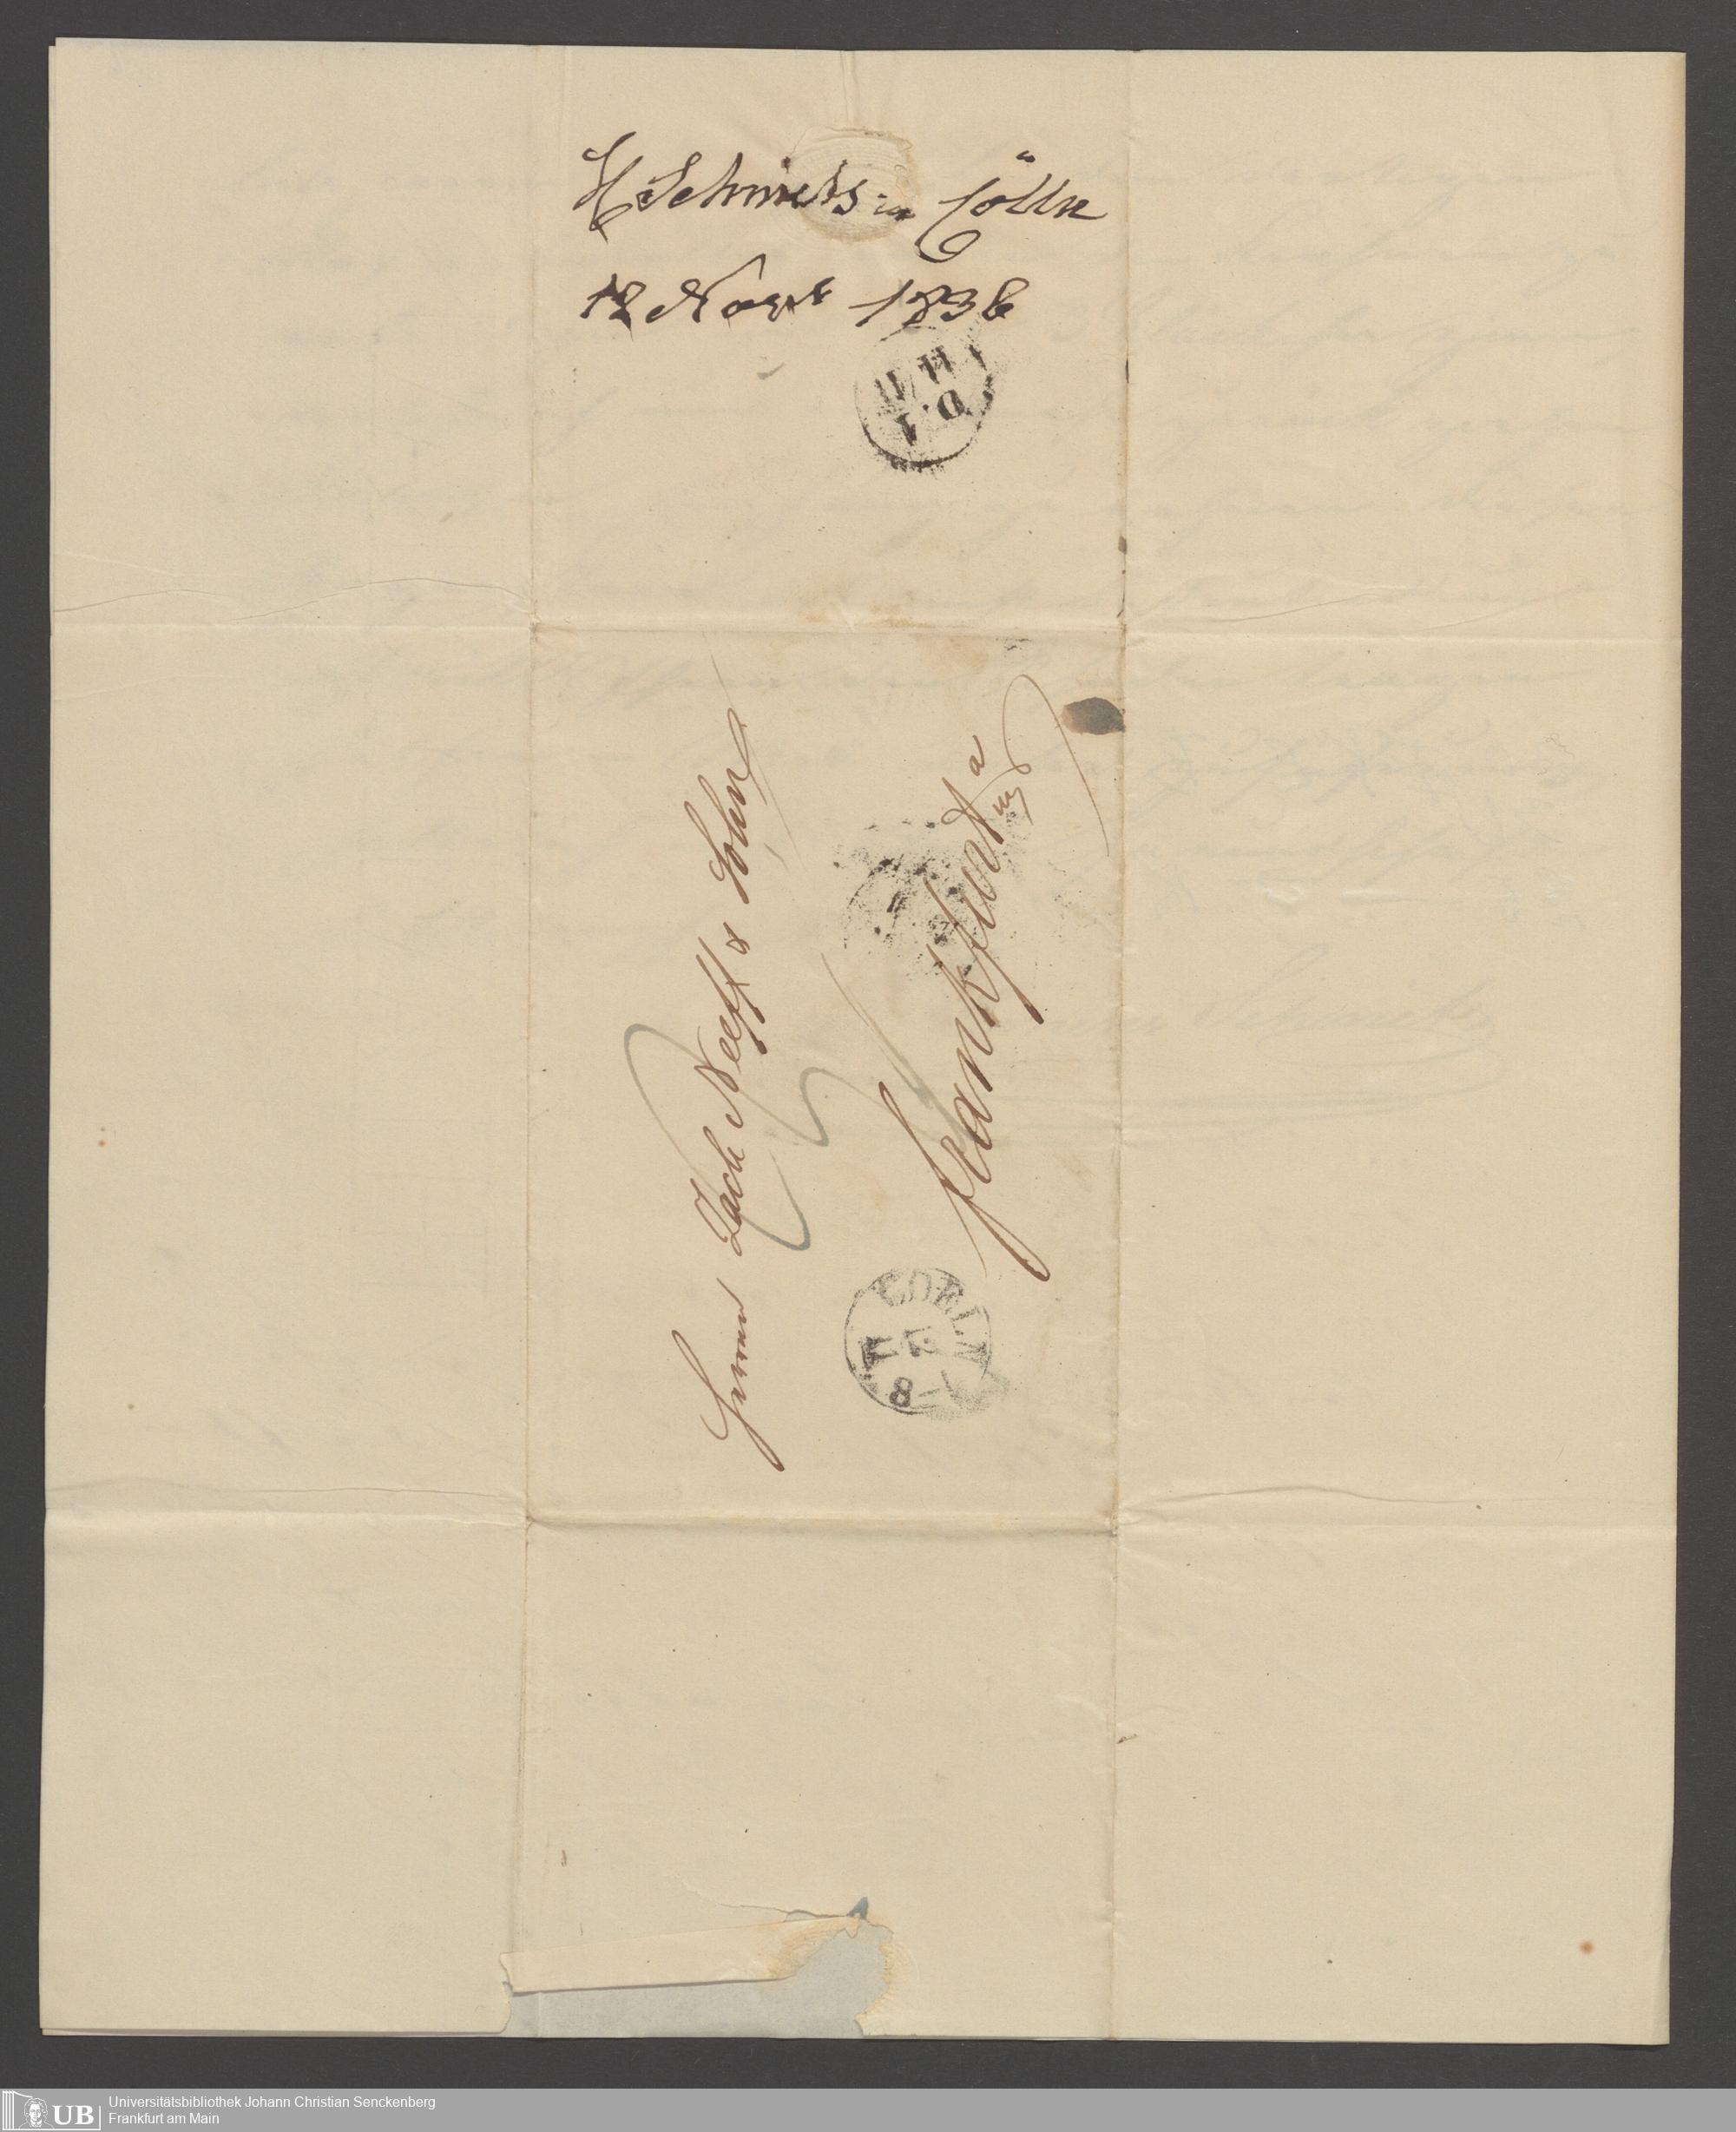 H Schmets in Cölln
12 Novr 1836
D. 1
14 11
Herren Zach Neeff & Sohn
Frankfurt a
m/
COELN
8-
UB
Universitätsbibliothek Johann Christian Senckenberg
Frankfurt am Main